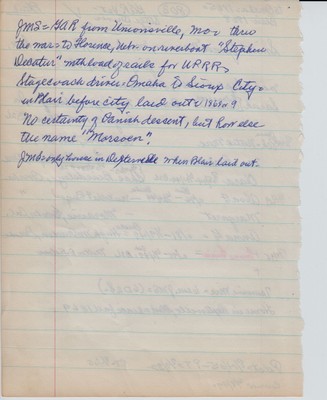 JMS = GAR from Unionsville, Mo. thru
the war to Florence, Nebr. on riverboat "Stephen
Decatur" with load of rails for UPRR.
Stagecoach driver Omaha to Sioux City.
in Blair before city laid out in 1869
No certainty of Danish descent, but how else
the name "Morsoen".
JMS's only house in Dexterville when Blair laid out.